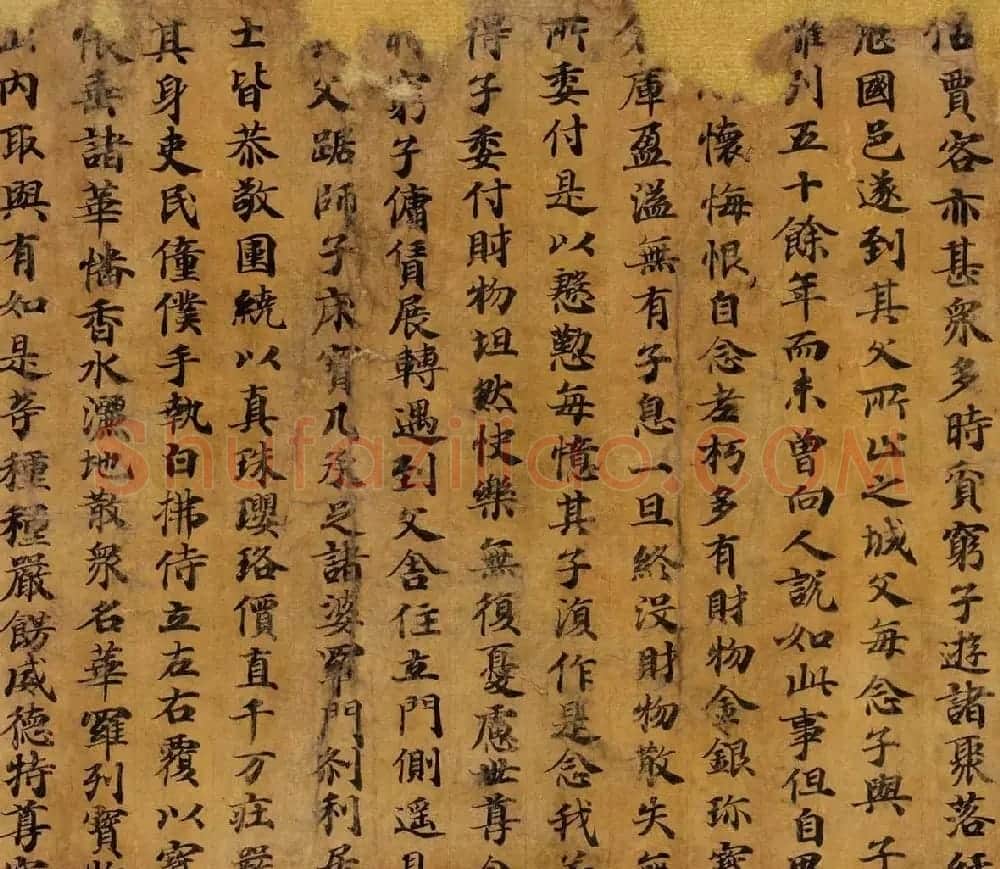 賈客亦甚衆多時貧窮子遊諸聚落
國邑遂到其父所止之城父每念子與子
離列五十餘年而未曾向人說如此事但自思
懷悔恨自念老朽多有財物金銀珎寳
庫盈溢無有子息一旦終没財物散失無
所委付是以慇懃每憶其子湏作是念我
得子委付財物坦然快樂無復憂慮世尊
窮子傭賃展轉遇到父舍住立門側遥
父踞師子床寳几承足諸婆羅門刹利居
士皆恭敬圍繞以真珠瓔珞價直千万莊嚴
其身吏民僮僕手執白拂侍立左右覆以寳
帳垂諸華幡香水灑地散衆名華羅列寳
内取與有如是等種種嚴餝威德特尊
Shufaziliao.COM